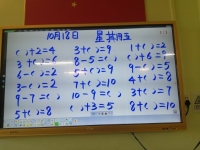 10月12日 星期五
( )+2=4 3+( )=9 1+( )=2
3+( )=6 8-5=( ) ( )+6=9
6-( )=2 5+( )=9 9-( )=5
3-( )=2 7+( )=10 4-( )=3
9-7=( ) 10-9=( ) 3+( )=7
5+( )=8 ( )+3=5 8+( )=10